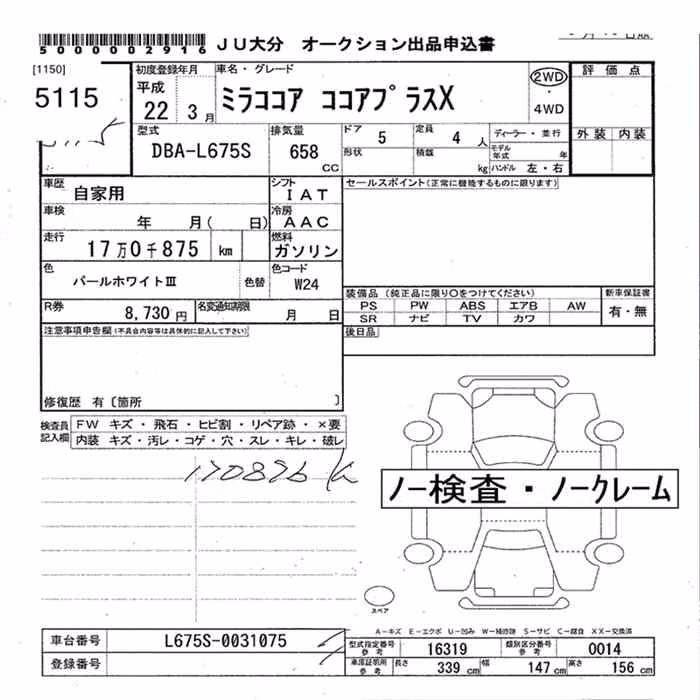 5000002916 JU大分 オークション出品申込書
[1150]
5115
初度登録年月 平成 22 3月
車名・グレード
ミラココア ココアプラスX
2WD
・
4WD
評価点
外装 内装
型式
DBA-L675S
排気量
658
CC
ドア 5
定員 4 人
ディーラー・並行
形状
積載 kg
モデル年式 年
ハンドル 左・右
車歴 自家用
シフト IAT
セールスポイント(正常に機能するものに限ります)
車検 年 月( 日)
冷房 AAC
走行 17万0千875 km
燃料 ガソリン
色 パールホワイトⅢ 色替
色コード W24
装備品 (純正品に限り○をつけてください)
新車保証書
PS PW ABS エアB AW
SR ナビ TV カワ
有・無
R券 8,730円
名変通知期限 月 日
注意事項申告欄(不具合内容等は具体的に記入して下さい)
後日品
修復歴 有〔箇所 〕
検査員記入欄
FW キズ・飛石・ヒビ割・リペア跡・×要
内装 キズ・汚レ・コゲ・穴・スレ・キレ・破レ
170876
ノー検査・ノークレーム
スペア
A-キズ E-エクボ U-凹み W-補修跡 S-サビ C-腐食 XX-交換済
車台番号 L675S-0031075
登録番号
型式指定番号 参考 16319
類別区分番号 参考 0014
車庫証明用 参考
長さ 339 cm
幅 147 cm
高さ 156 cm